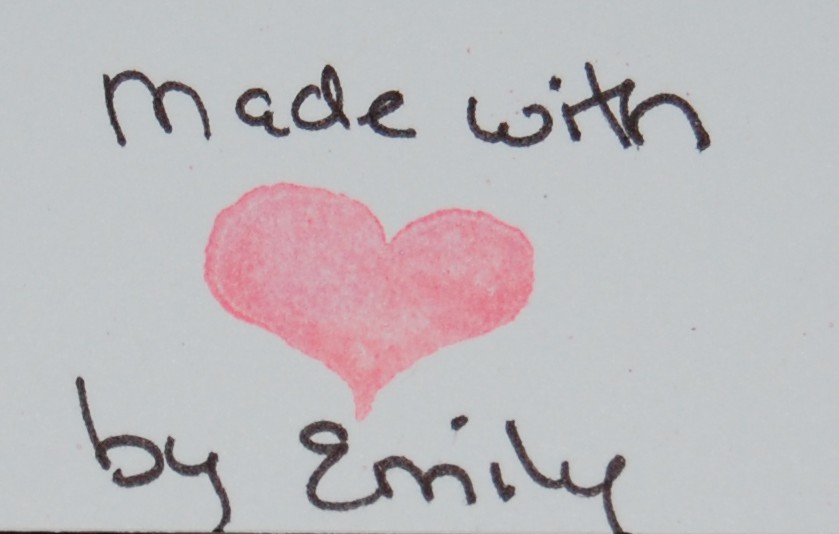 made with
by Emily